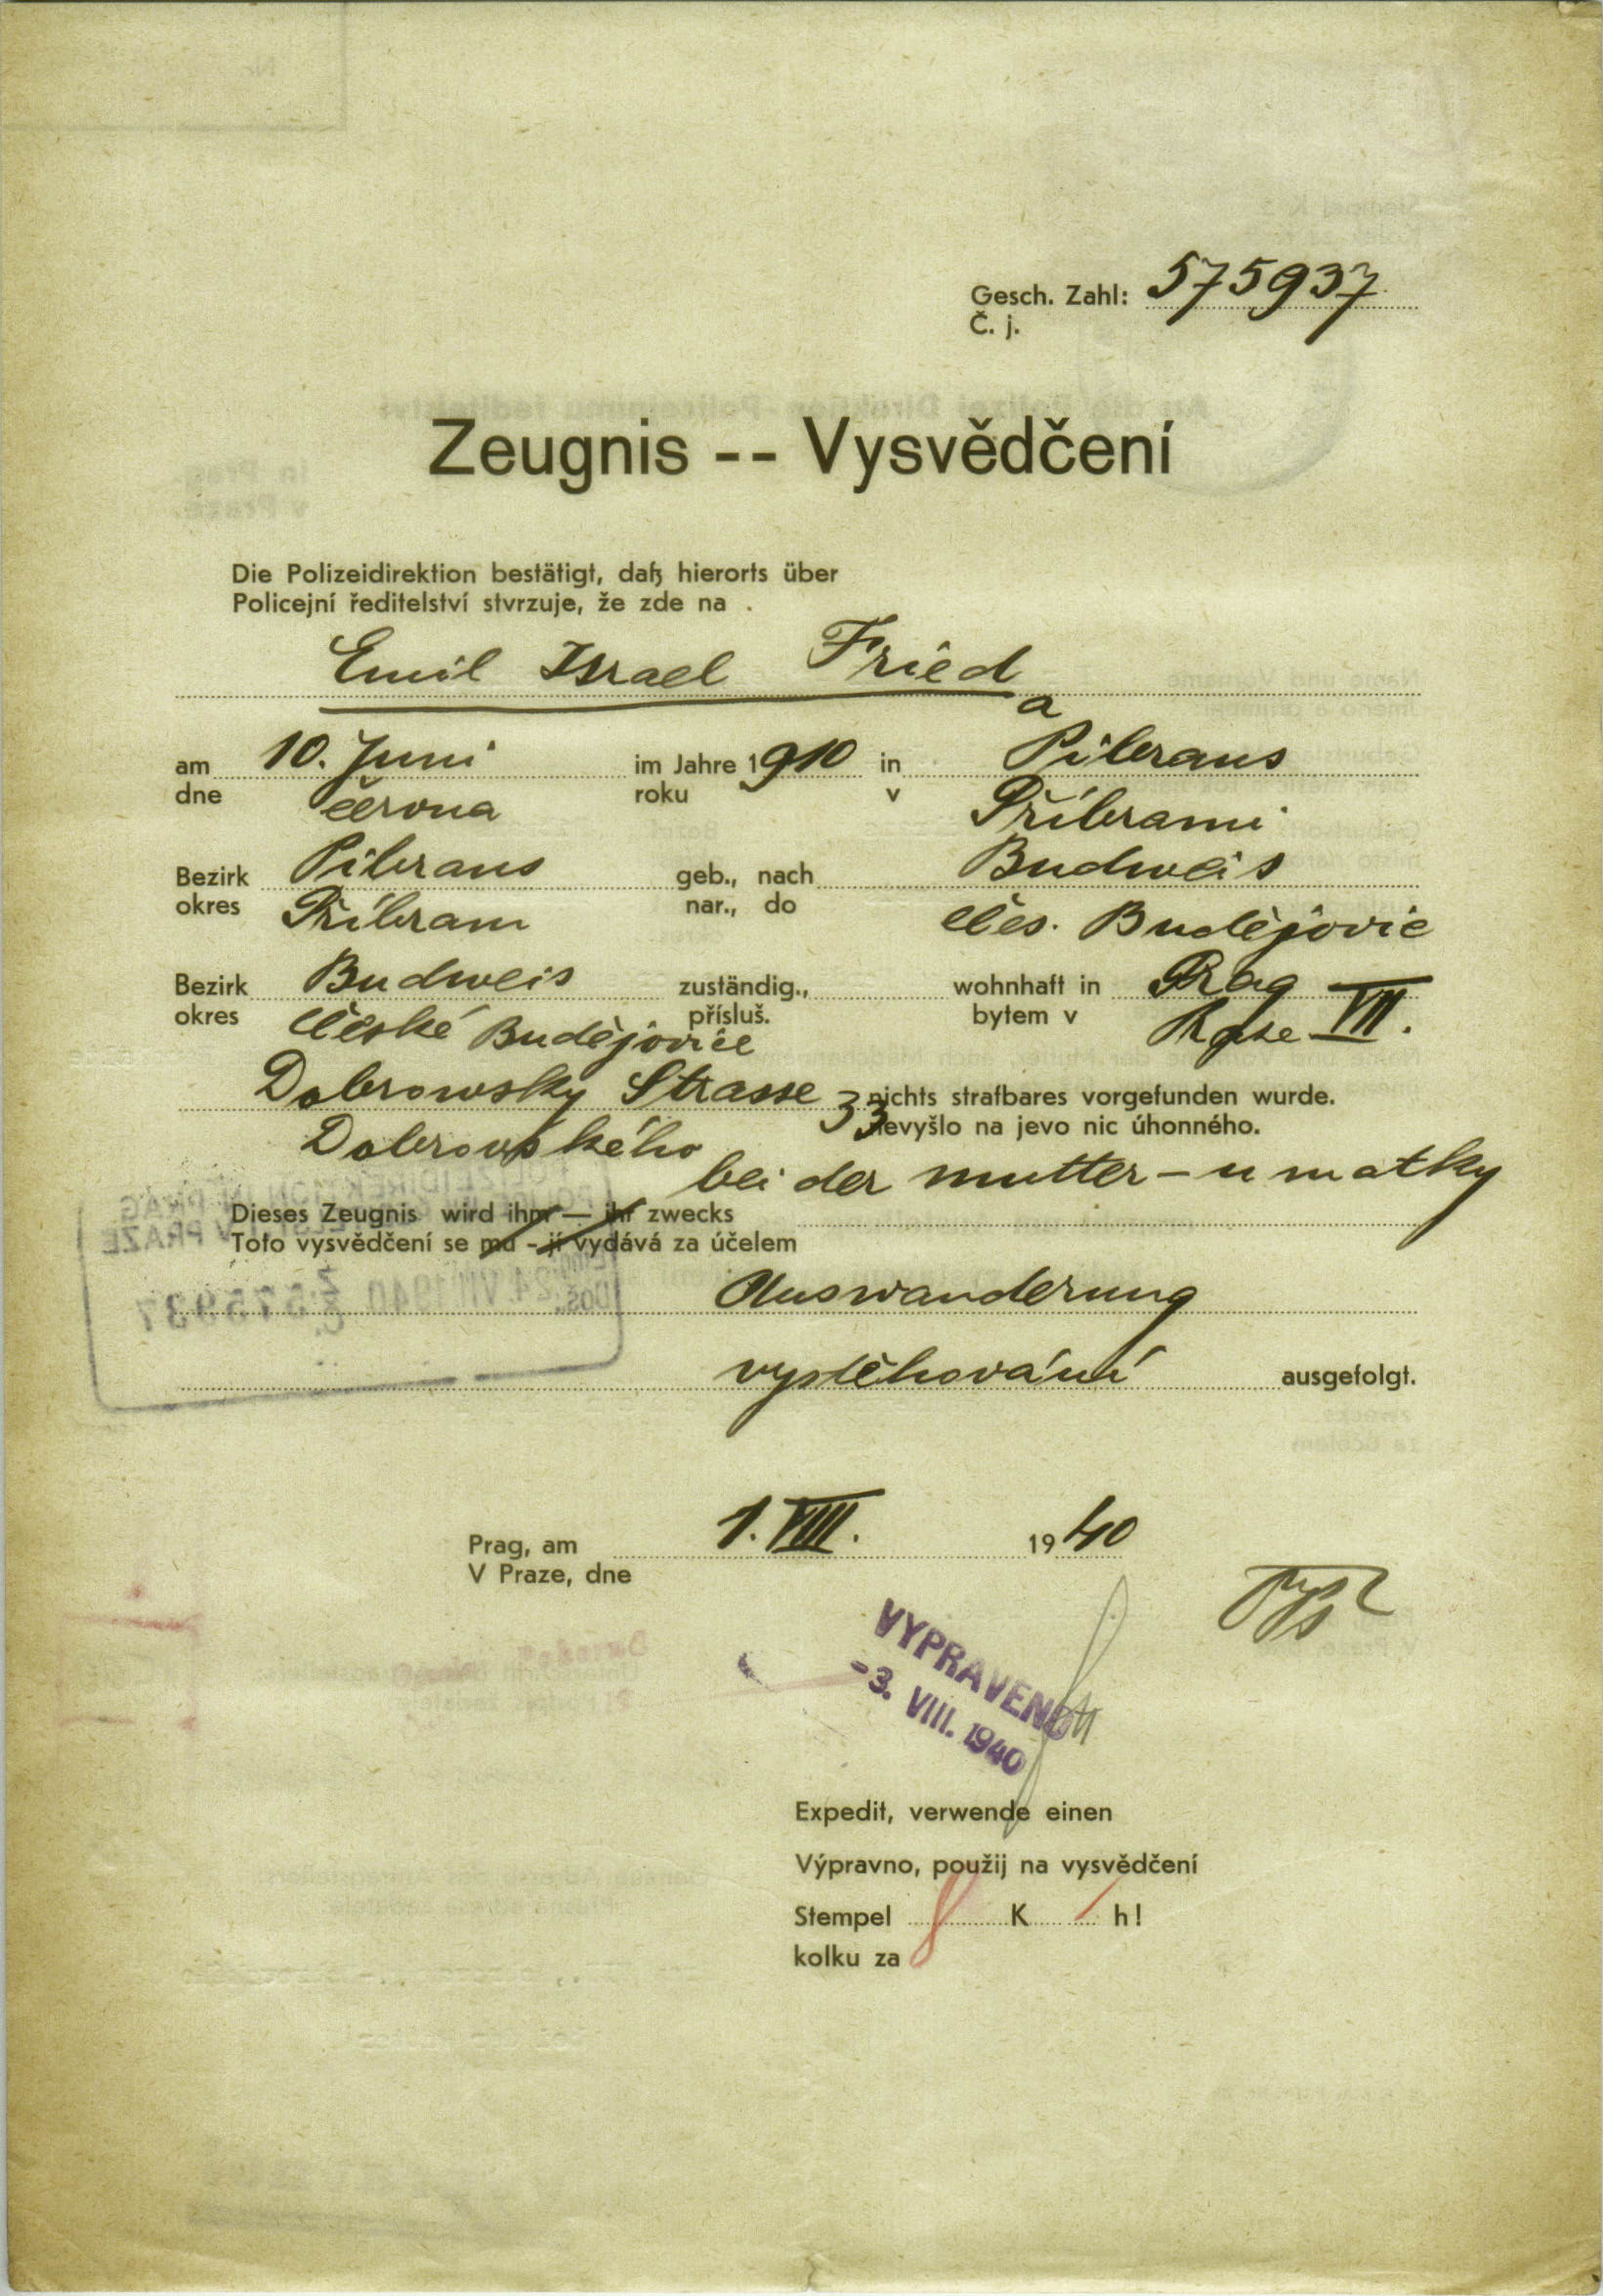 Gesch. Zahl: 575937
Č. j.
Zeugnis -- Vysvědčení
Die Polizeidirektion bestätigt, daß hierorts über
Policejní ředitelství stvrzuje, že zde na
Emil Israel Fried
a
am 10. Juni im Jahre 1910 in Pibrans
dne června roku v Příbrami
Bezirk Pibrans geb., nach Budweis
okres Příbram nar., do Čes. Budějovic
Bezirk Budweis zuständig., wohnhaft in Prag VII.
okres České Budějovice přísluš. bytem v Praze
Dobrowsky Strasse 33 nichts strafbares vorgefunden wurde.
Dobrovského nevyšlo na jevo nic úhonného.
bei der mutter - u matky
Dieses Zeugnis wird ihm — ihr zwecks
Toto vysvědčení se mu - jí vydává za účelem
Auswanderung
vystěhování ausgefolgt.
Prag, am 1. VIII. 1940
V Praze, dne
VYPRAVENO
-3. VIII. 1940
Expedit, verwende einen
Výpravno, použij na vysvědčení
Stempel 8 K h!
kolku za
POLIZEIDIREKTION IN PRAG
V PRAZE
24. VII. 1940
575937